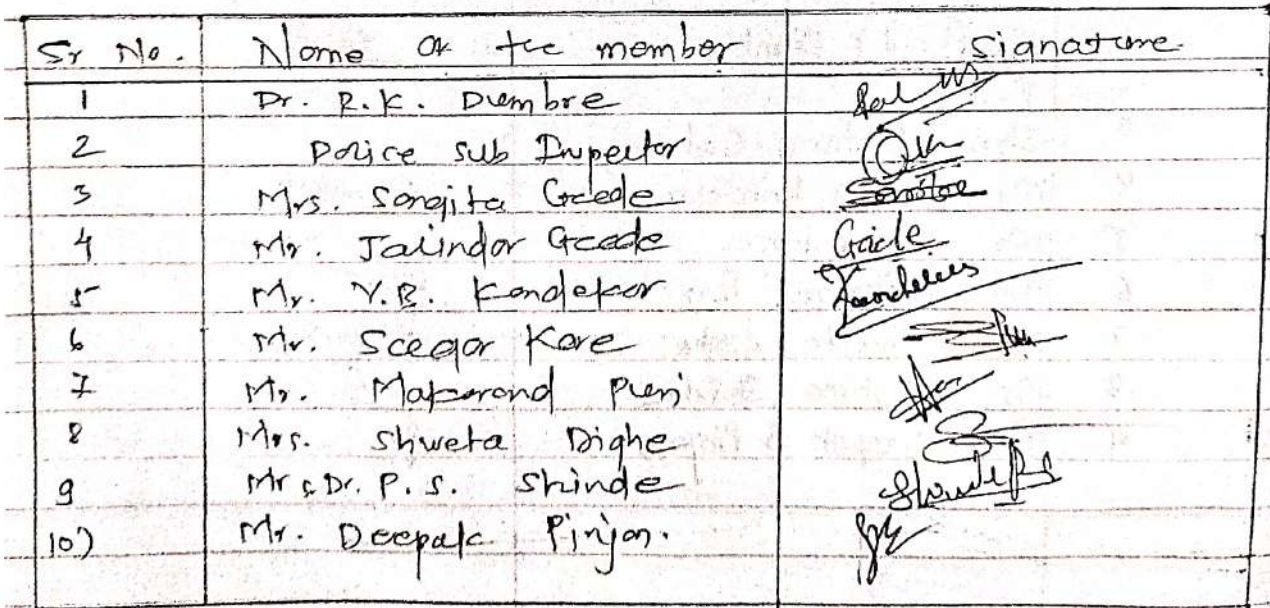 Sr No. Name of the member Signature
1 Dr. R.K. Dumbre
2 Police Sub Inspector
3 Mrs. Sangita Gade
4 Mr. Jalindar Gade Gade
5 Mr. V.B. Kandekar
6 Mr. Sagar Kare
7 Mr. Makarand Puri
8 Mrs. Shweta Dighe
9 Mr & Dr. P. S. Shinde
10) Mr. Deepak Pinjan.